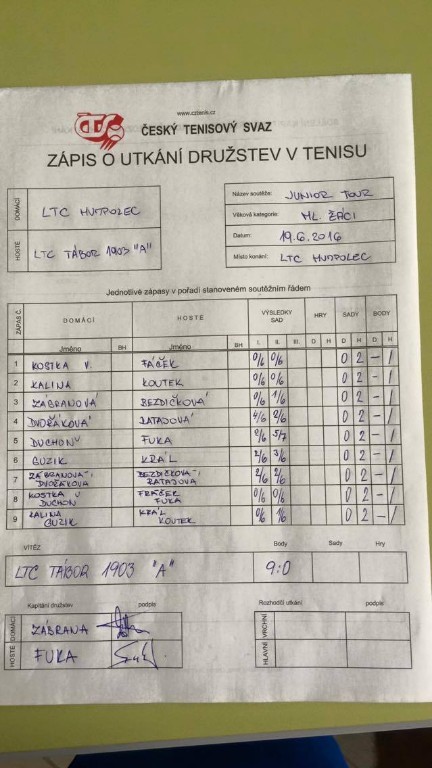 www.cztenis.cz
ČTS
ČESKÝ TENISOVÝ SVAZ
ZÁPIS O UTKÁNÍ DRUŽSTEV V TENISU
DOMÁCÍ LTC HUMPOLEC
HOSTÉ LTC TÁBOR 1903 "A"
Název soutěže: JUNIOR TOUR
Věková kategorie: ML. ŽÁCI
Datum: 19.6.2016
Místo konání: LTC HUMPOLEC
Jednotlivé zápasy v pořadí stanoveném soutěžním řádem
ZÁPAS Č. DOMÁCÍ HOSTÉ VÝSLEDKY SAD HRY SADY BODY
Jméno BH Jméno BH I. II. III. D H D H D H
1 KOSTKA V. FÁČEK 0/6 0/6 0 2 - /
2 KALINA KOUTEK 0/6 0/6 0 2 - /
3 ZÁBRANOVÁ BEZDIČKOVÁ 0/6 1/6 0 2 - /
4 DVOŘÁKOVÁ RATAJOVÁ 4/6 2/6 0 2 - /
5 DUCHOŇ FUKA 5/7 0 2 - /
6 GUZIK KRÁL 2/6 3/6 0 2 - /
7 ZÁBRANOVÁ DVOŘÁKOVA BEZDIČKOVÁ RATAJOVA 2/6 2/6 0 2 - /
8 KOSTKA V DUCHON FUKA 0/6 0/6 0 2 - /
9 KALINA GUZIK KRÁL KOUTEK 0/6 1/6 0 2 - /
VÍTĚZ Body Sady Hry
LTC TÁBOR 1903 "A" 9:0
Kapitáni družstev podpis
DOMÁCÍ ZÁBRANA
HOSTÉ FUKA
Rozhodčí utkání podpis
VRCHNÍ
HLAVNÍ